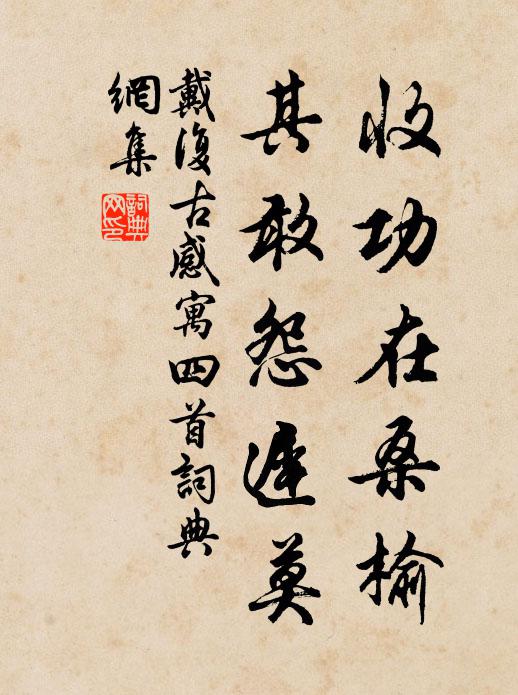 收功在桑榆
其敢怨遲莫
戴復古感寓四首詞典
網集
詞典網印